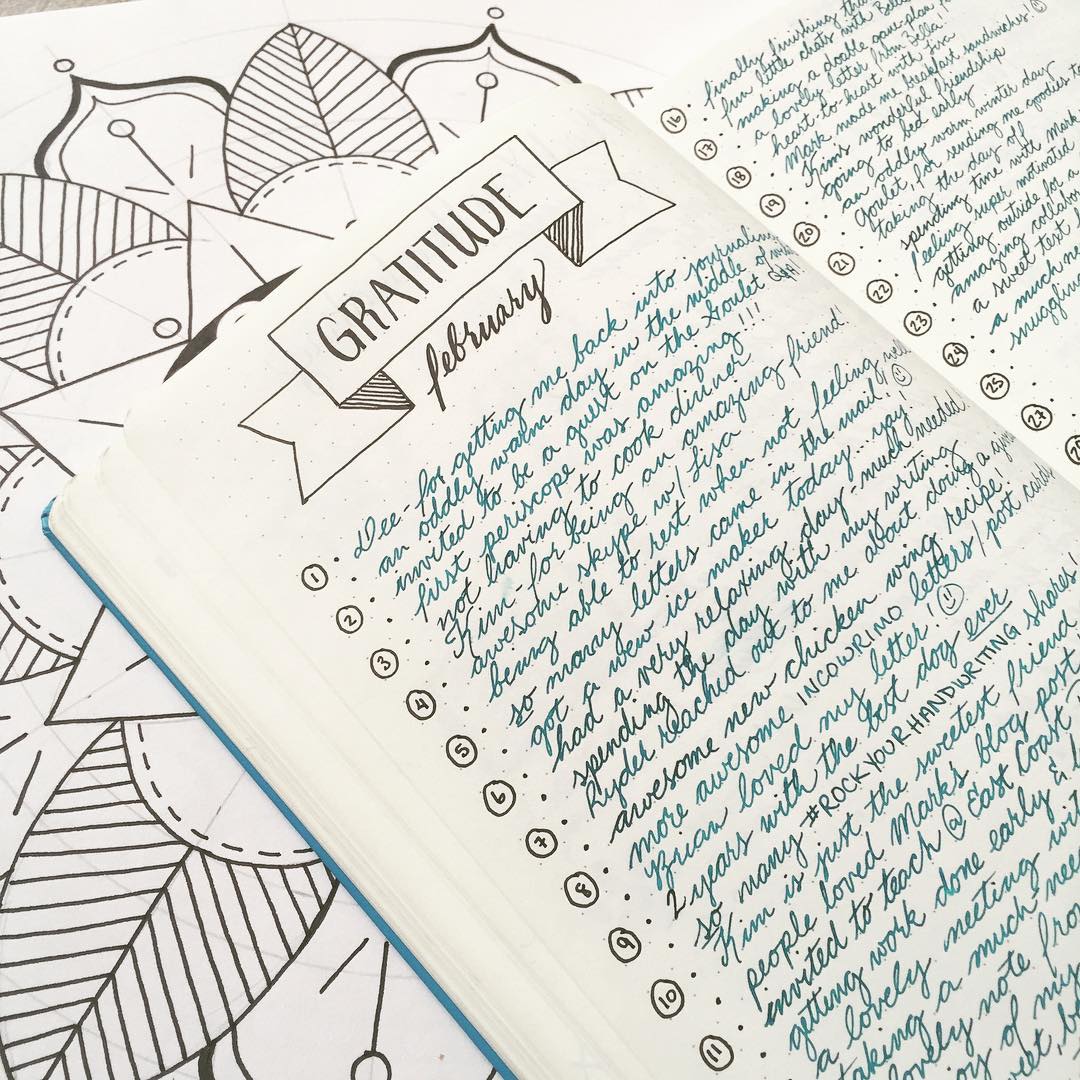 GRATITUDE
february
1
Dee - for getting me back into journaling
an oddly warm day in the middle of my
invited to be a guest on the Goulet Q&A!
2
first periscope was amazing!!!
not having to cook dinner
3
Kim - for being an amazing friend!
awesome skype w/ Lisa
4
being able to rest when not feeling well
so many letters came in the mail!
5
got a new ice maker today... yay!
had a very relaxing day - much needed
6
spending the day with my writing
Ryder reached out to me about doing a
7
awesome new chicken wing recipe!
more awesome INCOWRIMO letters/post cards
8
Brian loved my letter!
2 years with the best dog ever
9
so many #ROCKYOURHANDWRITING shares!
Kim is just the sweetest friend
10
people loved Mark's blog post
invited to teach @ East Coast
11
getting work done early &
a lovely meeting
taking a much
lovely note from
of my
finally finishing
fun little chats with
16
making a double
a lovely letter from Bella!
17
heart-to-heart with
Mark made me breakfast sandwiches!
18
Kim's wonderful friendship
going to bed early
19
an oddly warm winter day
Goulet, for sending me goodies to
20
taking the day off
spending time with Mark
21
feeling super motivated
getting outside for a
22
amazing
a sweet text
23
a much
24
25
27